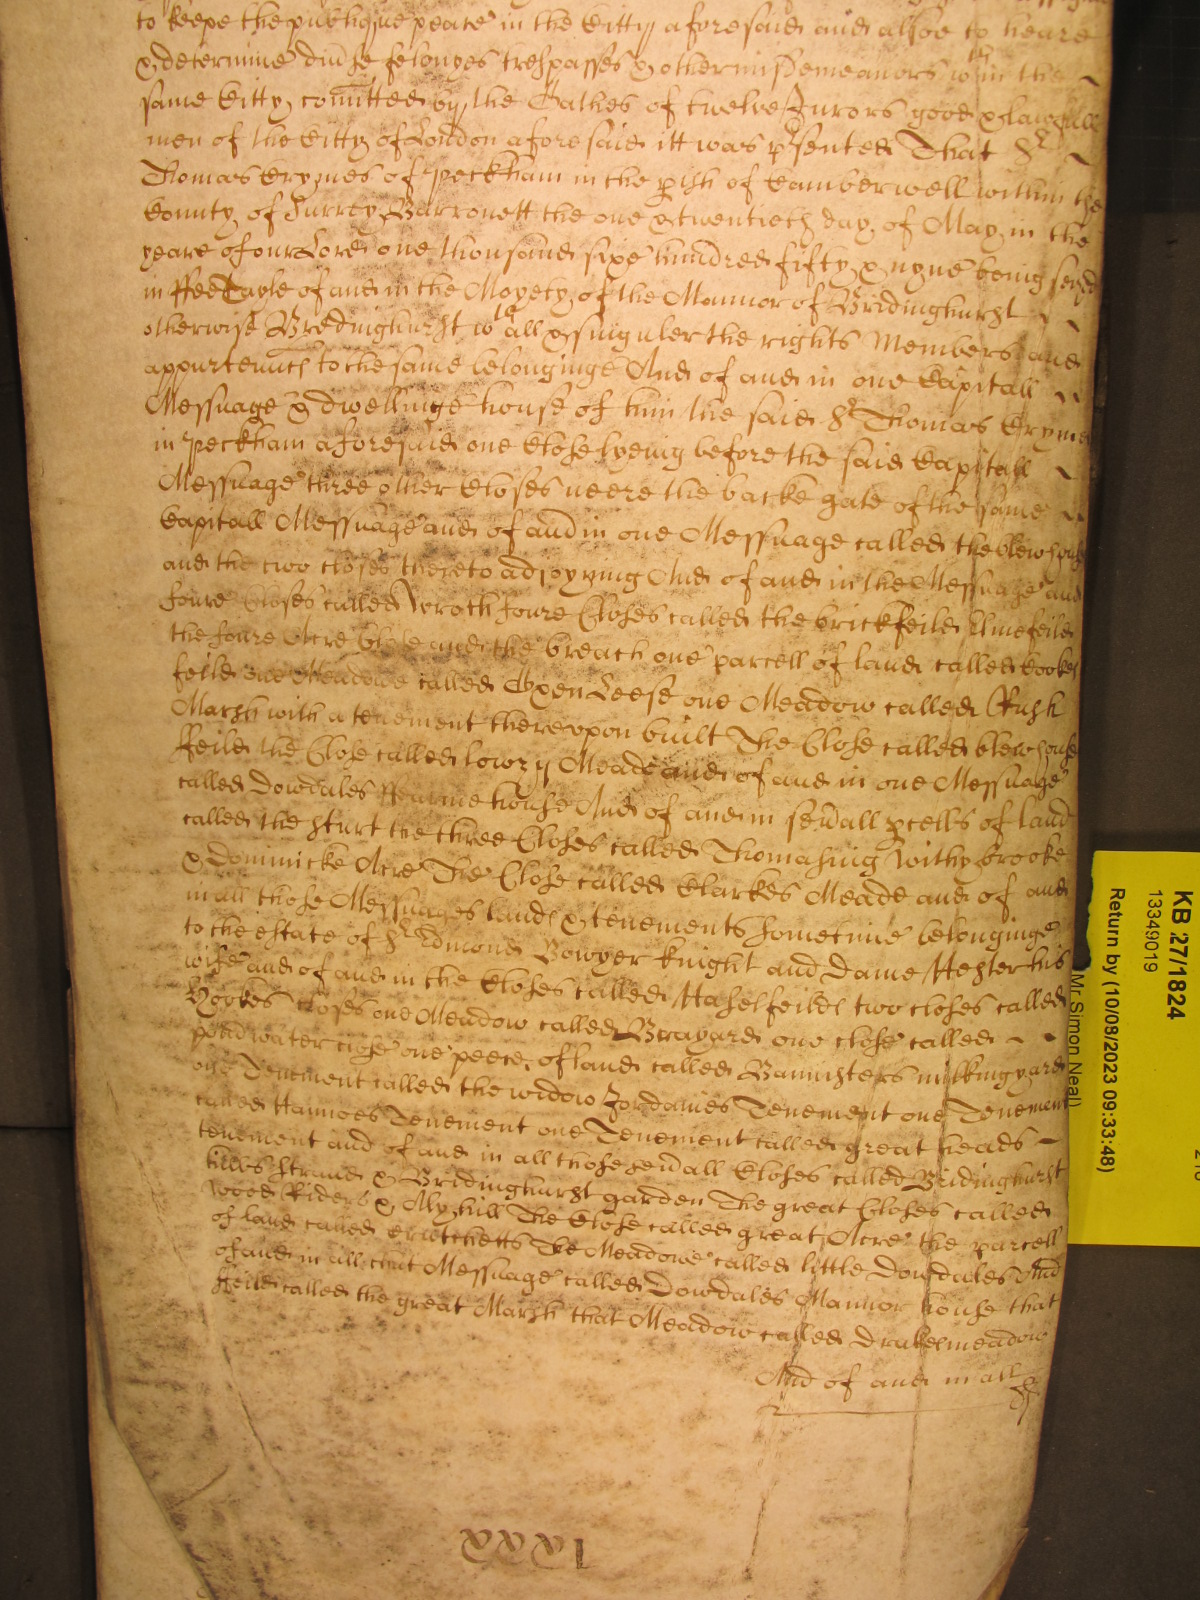 to keepe the publique peace in the Citty aforesaid and alsoe to heare
& determine diu'se felonyes trespasses & other misdemeanors wthin the
same Citty comitted by the Oathes of twelve Jurors good & lawfull
men of the Citty of London aforesaid itt was p'sented That Sr
Thomas Crymes of Peckham in the p'ish of Camberwell within the
County of Surrey Barronett the one & twentieth day of May in the
yeare of our Lord one thousand sixe hundred fifty & nyne being seized
in ffee Tayle of and in the Moyety of the Mannor of Bridinghurst
otherwise Bredinghurst wth all & singuler the rights Members and
appurtenncs to the same belonginge And of and in one Capitall
Messuage & dwellinge house of him the said Sr Thomas Crymes
in Peckham aforesaid one Close lyeing before the said Capitall
Messuage three other Closes neere the backe gate of the same
Capitall Messuage and of and in one Messuage called the blewhouse
and the two closes thereto adjoyning And of and in the Messuage and
foure Closes called Wroth foure Closes called the brickfeild Elmefeild
the foure Acre Close and the breach one parcell of land called Cookes
feild one Meadowe called Oxen Leese one Meadow called Rush
Marsh with a tenement thereupon built The Close called blewhouse
ffeild the Close called lowzy Meade and of and in one Messuage
called Dowdales ffearme house And of and in seu'all p'cells of land
called the Sturt the three Closes called Thomasing Withy brooke
& Dominicke Acre The Close called Clarkes Meade and of and
in all those Messuages lands & tenements sometime belonginge
to the estate of Sr Edmond Bowyer Knight and Dame Hester his
wife and of and in the Closes called Haselfeilds two closes called
Yorkes closes one Meadow called Brayard one close called
pondwater close one peece of land called Bannisters milkingyard
one Tenement called the widow Jordaines Tenement one Tenement
called Hamoes Tenement one Tenement called great heads
tenement and of and in all those seu'all Closes called Bridinghurst
hills Strand & Bridinghurst garden The great Closes called
wood Riders & Alyhill The Close called great Acre the parcell
of land called Crutchetts The Meadowe called little Dowdales And
of and in all that Messuage called Dowdales Mannor house that
ffeild called the great Marsh that Meadow called Drakes meadow
And of and in all
KB 27/1824
13349019
Return by (10/08/2023 09:33:48)
Mr Simon Neal)